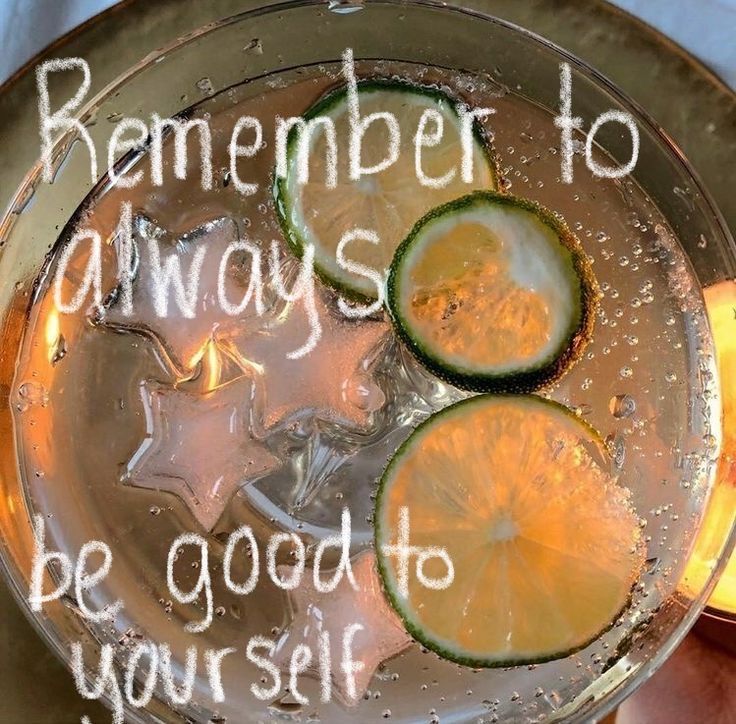 Remember to
always
be good to
yourself